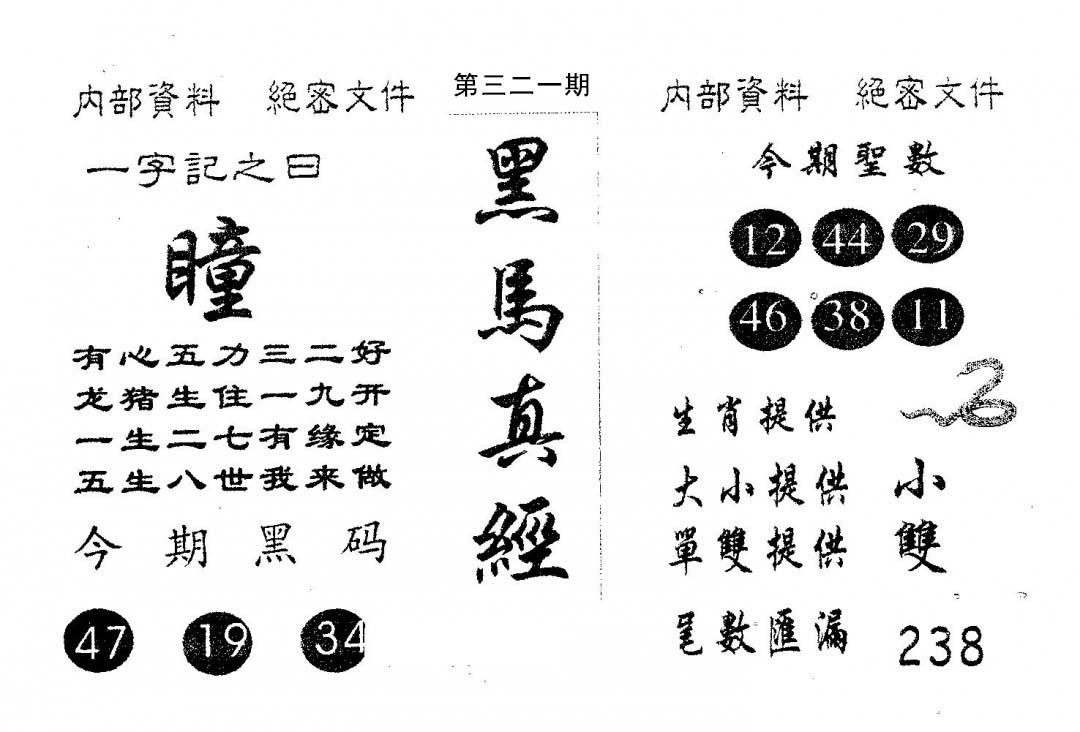 内部資料 絕密文件
一字記之曰
瞳
有心五力三二好
龙猪生住一九开
一生二七有缘定
五生八世我来做
今期黑码
47 19 34
第三二一期
黑馬真經
内部資料 絕密文件
今期聖數
12 44 29
46 38 11
生肖提供
大小提供 小
單雙提供 雙
尾數匯漏 238